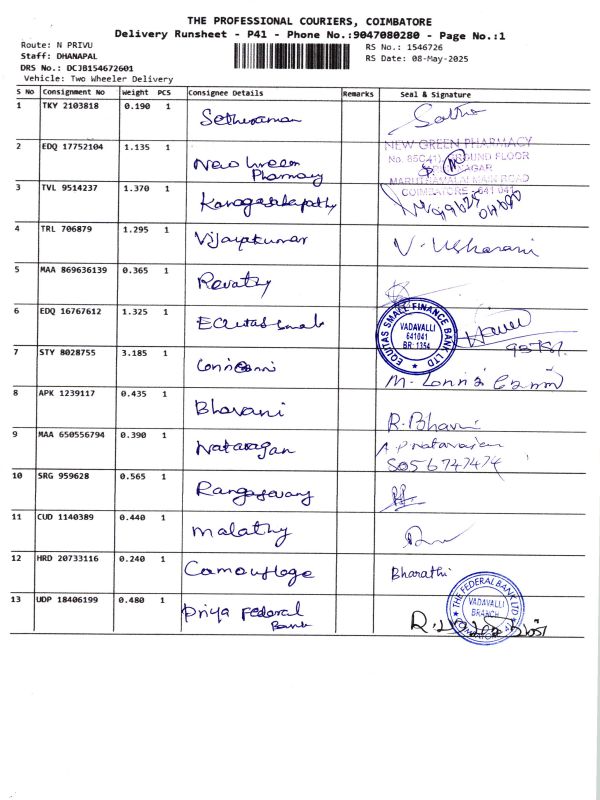 THE PROFESSIONAL COURIERS, COIMBATORE
Delivery Runsheet - P41 - Phone No.:9047080280 - Page No.:1
Route: N PRIVU
RS No.: 1546726
Staff: DHANAPAL
RS Date: 08-May-2025
DRS No.: DCJB154672601
Vehicle: Two Wheeler Delivery
S No Consignment No Weight PCS Consignee Details Remarks Seal & Signature
1 TKY 2103818 0.190 1 Sethuraman
2 EDQ 17752104 1.135 1 New Green Pharmacy
NEW GREEN PHARMACY
GROUND FLOOR
MARUTHAMALAI MAIN ROAD
COIMBATORE - 641 041
3 TVL 9514237 1.370 1 Kanagasabapathy
4 TRL 706879 1.295 1 Vijayakumar V. Usharani
5 MAA 869636139 0.365 1 Revathy
6 EDQ 16767612 1.325 1 Equitas Small
EQUITAS SMALL FINANCE BANK LTD
VADAVALLI
641041
BR: 1354
7 STY 8028755 3.185 1
8 APK 1239117 0.435 1 Bhavani R. Bhavani
9 MAA 650556794 0.390 1 Nataragan A.P Natarajan
8056747474
10 SRG 959628 0.565 1 Rangasamy
11 CUD 1140389 0.440 1 Malathy
12 HRD 20733116 0.240 1 Camouflage Bharathi
13 UDP 18406199 0.480 1 Priya Federal Bank
THE FEDERAL BANK LTD
VADAVALLI
BRANCH